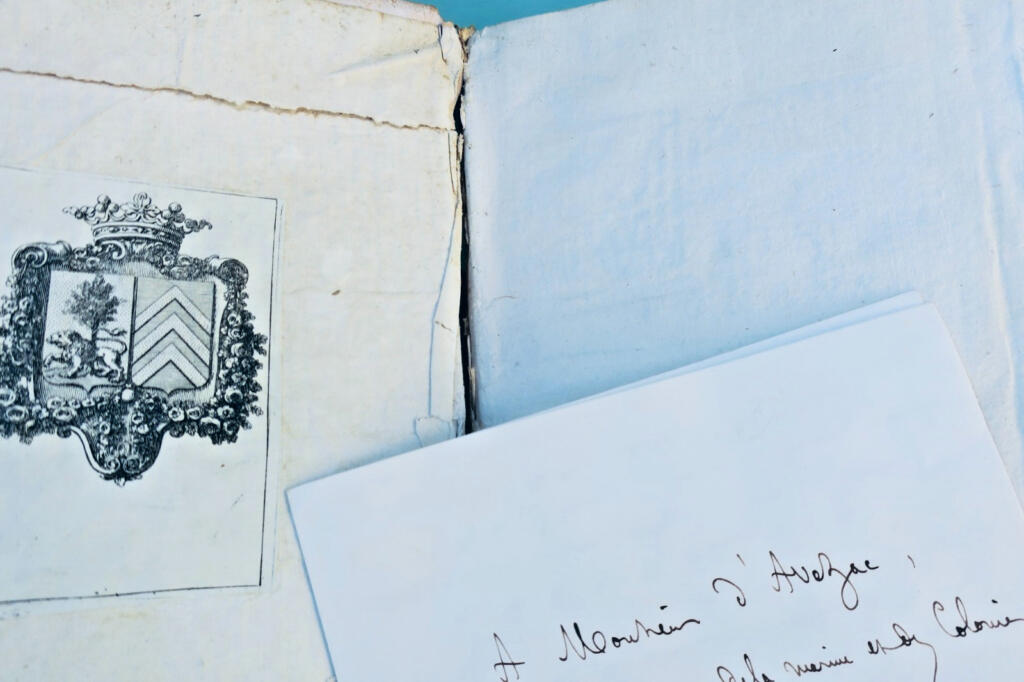 A Monsieur d'Avezac,
de la marine et des Colonies